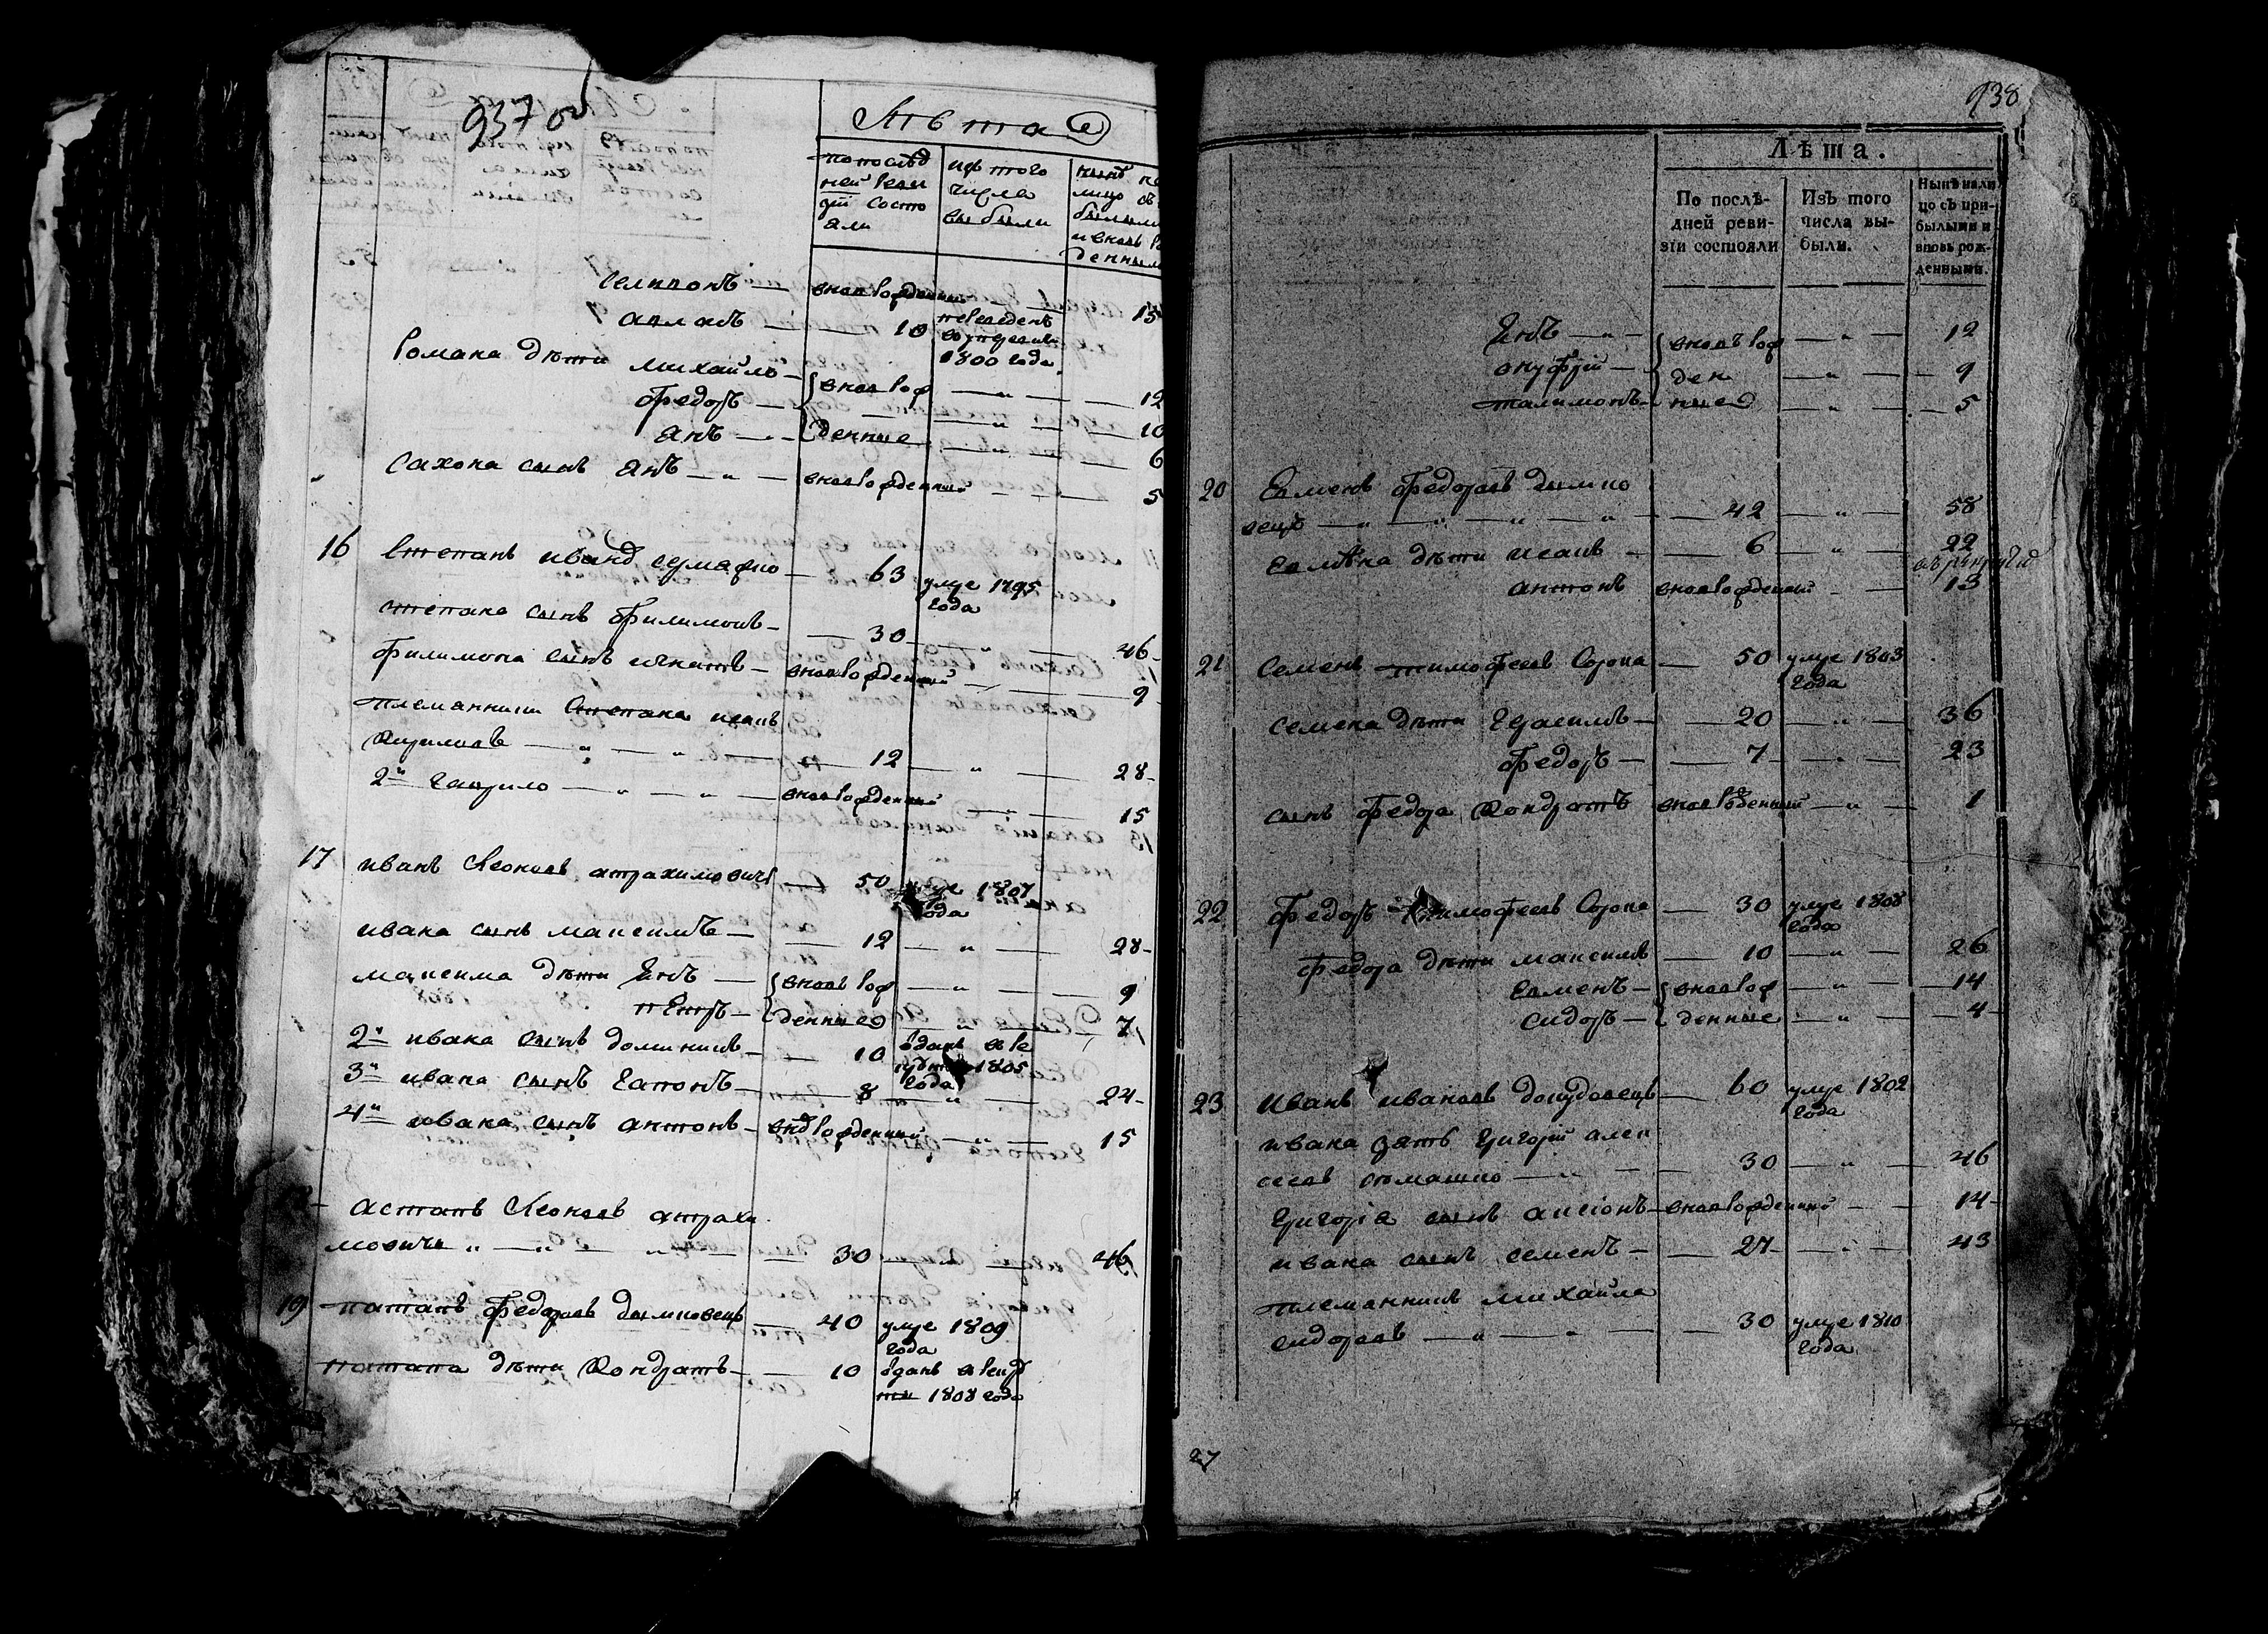 937 об
Лѣта
по послѣд
ней реви
зіи состо
яли
изъ того
числа
выбыли
нынѣ на
лицо съ
былыми
и вновь ро
денными
селивонъ — вновь рожденный — 15
авламъ — 10 переведенъ
1800 года
Романа дѣти михайло — вновь рож — „ — 12
федоръ — „ — 10
янъ — денные — „ — 6
сахона сынъ янъ — „ — вновь рожденный — 5
16 Степанъ — 63 умре 1795
года
степана сынъ филимонъ — 30 — „ — 46
филимона сынъ игнатъ — вновь рожденный — 9
племянники Степана иванъ
Кириловъ — „ — „ — 12 — „ — 28
2й гаврило — „ — „ — вновь рожденный — 15
17 иванъ Леоновъ атрахимовичъ — 50 умре 1807
года
ивана сынъ максимъ — 12 — „ — 28
максима дѣти янъ — вновь рож — „ — 9
пётръ — денные — „ — 7
2й ивана сынъ доминикъ — 10 вданъ въ ре
круты 1805
года
3й ивана сынъ гапонъ — 8 — „ — 24
4й ивана сынъ антонъ — вновь рожденный — „ — 15
астапъ Леоновъ атрахи
мовичъ „ — „ — „ — 30 — „ — 46
19 патапъ федоровъ дымковецъ — 40 умре 1809
года
патапа дѣти Кондратъ — 10 вданъ въ рекру
ты 1808 года
938
Лѣта.
По послѣ-
дней реви-
зіи состояли
Изъ того
числа вы-
были.
Нынѣ нали
цо съ при-
былыми и
вновь рож-
денными.
янъ — „ — вновь рож — „ — 12
онуфрій — ден — „ — 9
талимонъ — ные — „ — 5
20 Евменъ федоровъ дымко
вецъ — „ — „ — „ — „ — 42 — „ — 58
евмѣна дѣти иванъ — 6 — „ — 22
антонъ вновь рожденный — 13
21 Семенъ тимофеевъ Сорока — 50 умре 1803
года
семена дѣти Герасимъ — 20 — „ — 36
федоръ — 7 — „ — 23
сынъ федора Кондратъ вновь рожденный — „ — 1
22 федоръ тимофеевъ Сорока — 30 умре 1808
года
федора дѣти максимъ — 10 — „ — 26
евменъ — вновь рож — „ — 14
сидоръ — денные — „ — 4
23 иванъ ивановъ — 60 умре 1802
года
ивана зять григорій алек
сеевъ — „ — 30 — „ — 46
григорія сынъ вновь рожденный — 14
ивана сынъ семенъ — 27 — „ — 43
племянникъ михайла
сидоровъ — „ — „ — 30 умре 1810
года
27